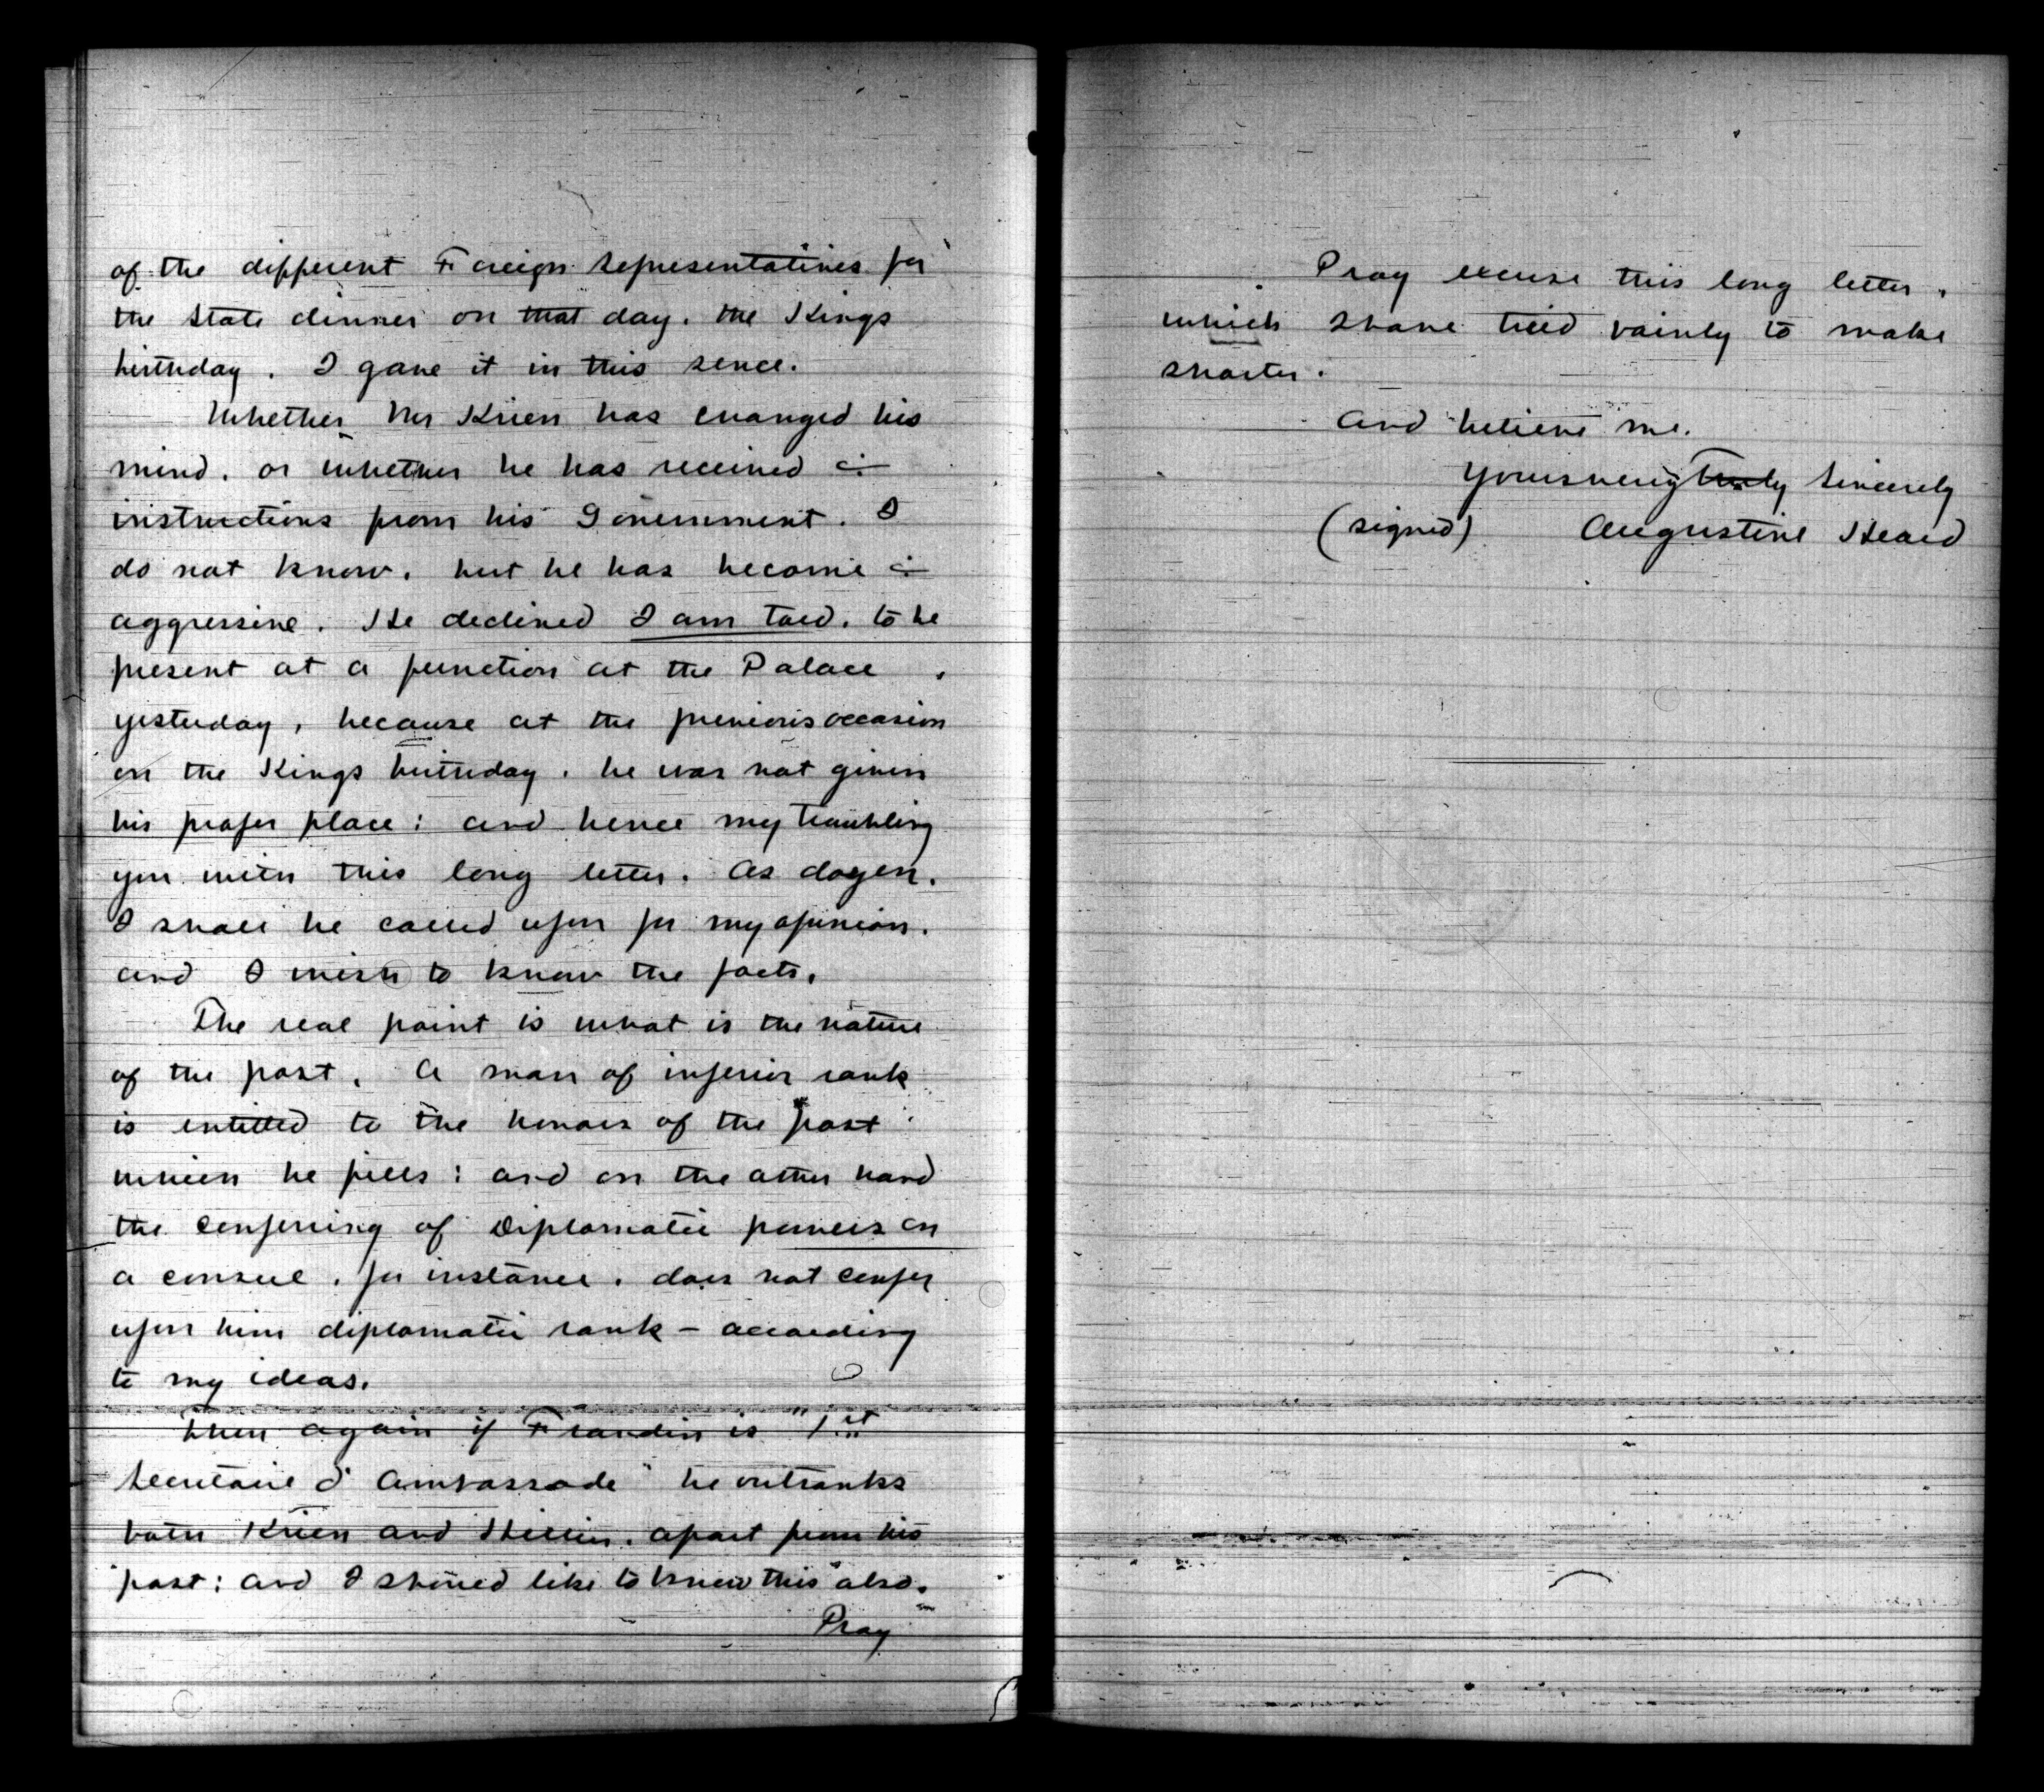 of the different Foreign representatives for
the State dinner on that day. the Kings
birthday. I gave it in this sence.
Whether Mr Krien has changed his
mind. or whether he has received
instructions from his Government. I
do not know. but he has become
aggressive. He declined I am told. to be
present at a function at the Palace
yesterday, because at the previous occasion
on the Kings birthday. he was not given
his proper place: and hence my troubling
you with this long letter. As doyen.
I shall be called upon for my opinion.
and I wish to know the facts.
The real point is what is the nature
of the post. A man of inferior rank
is entitled to the honors of the post
which he fills: and on the other hand
the conferring of Diplomatic powers on
a consul. for instance. does not confer
upon him diplomatic rank - according
to my ideas.
Then again if Frandin is "1st
Secretaire d'Ambassade" he outranks
both Krien and Hillier. apart from his
post: and I should like to know this also.
Pray
Pray excuse this long letter.
which I have tried vainly to make
shorter.
And believe me.
Yours very truly Sincerely
(signed) Augustine Heard